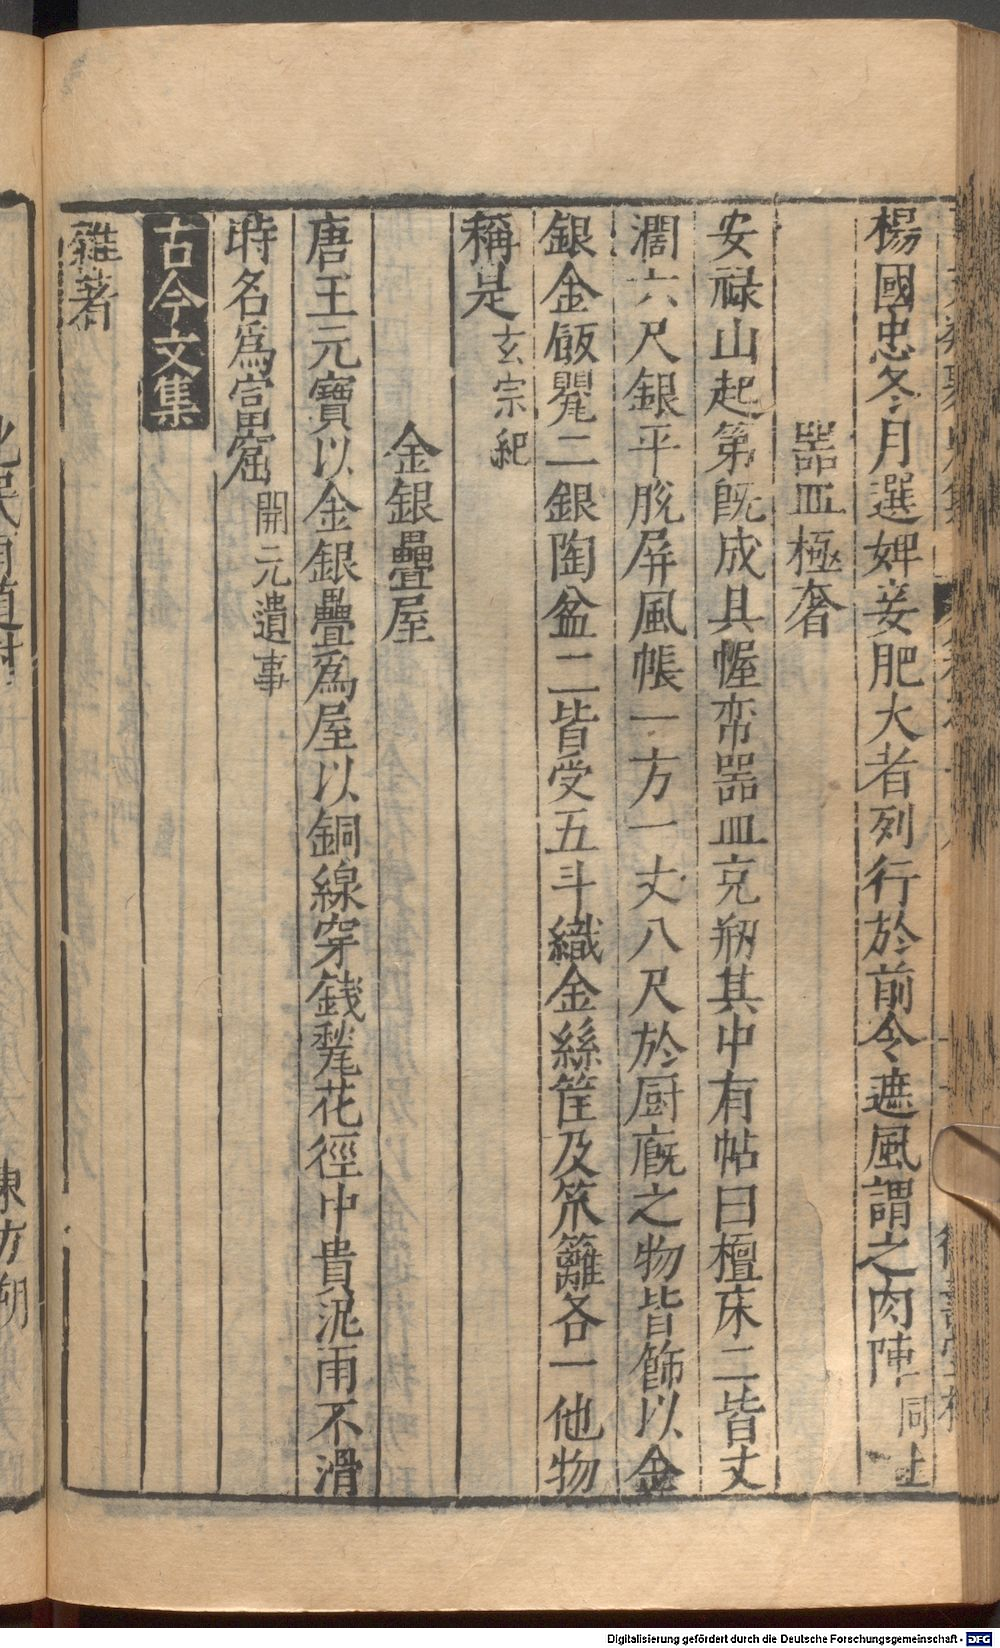 楊國忠冬月選婢妾肥大者列行於前令遮風謂之肉陣同上
器皿極奢
安祿山起第既成具幄帟器皿充牣其中有帖白檀床二皆丈
濶六尺銀平脫屏風帳一方一丈八尺於厨廐之物皆飾以金
銀金飯甖二銀陶盆二皆受五斗織金絲筐及笊籬各一他物
稱是玄宗紀
金銀疊屋
唐王元寶以金銀疊爲屋以銅線穿錢甃花徑中貴泥雨不滑
時名爲富窟開元遺事
古今文集
雜著
東方朔
Digitalisierung gefördert durch die Deutsche Forschungsgemeinschaft - DFG